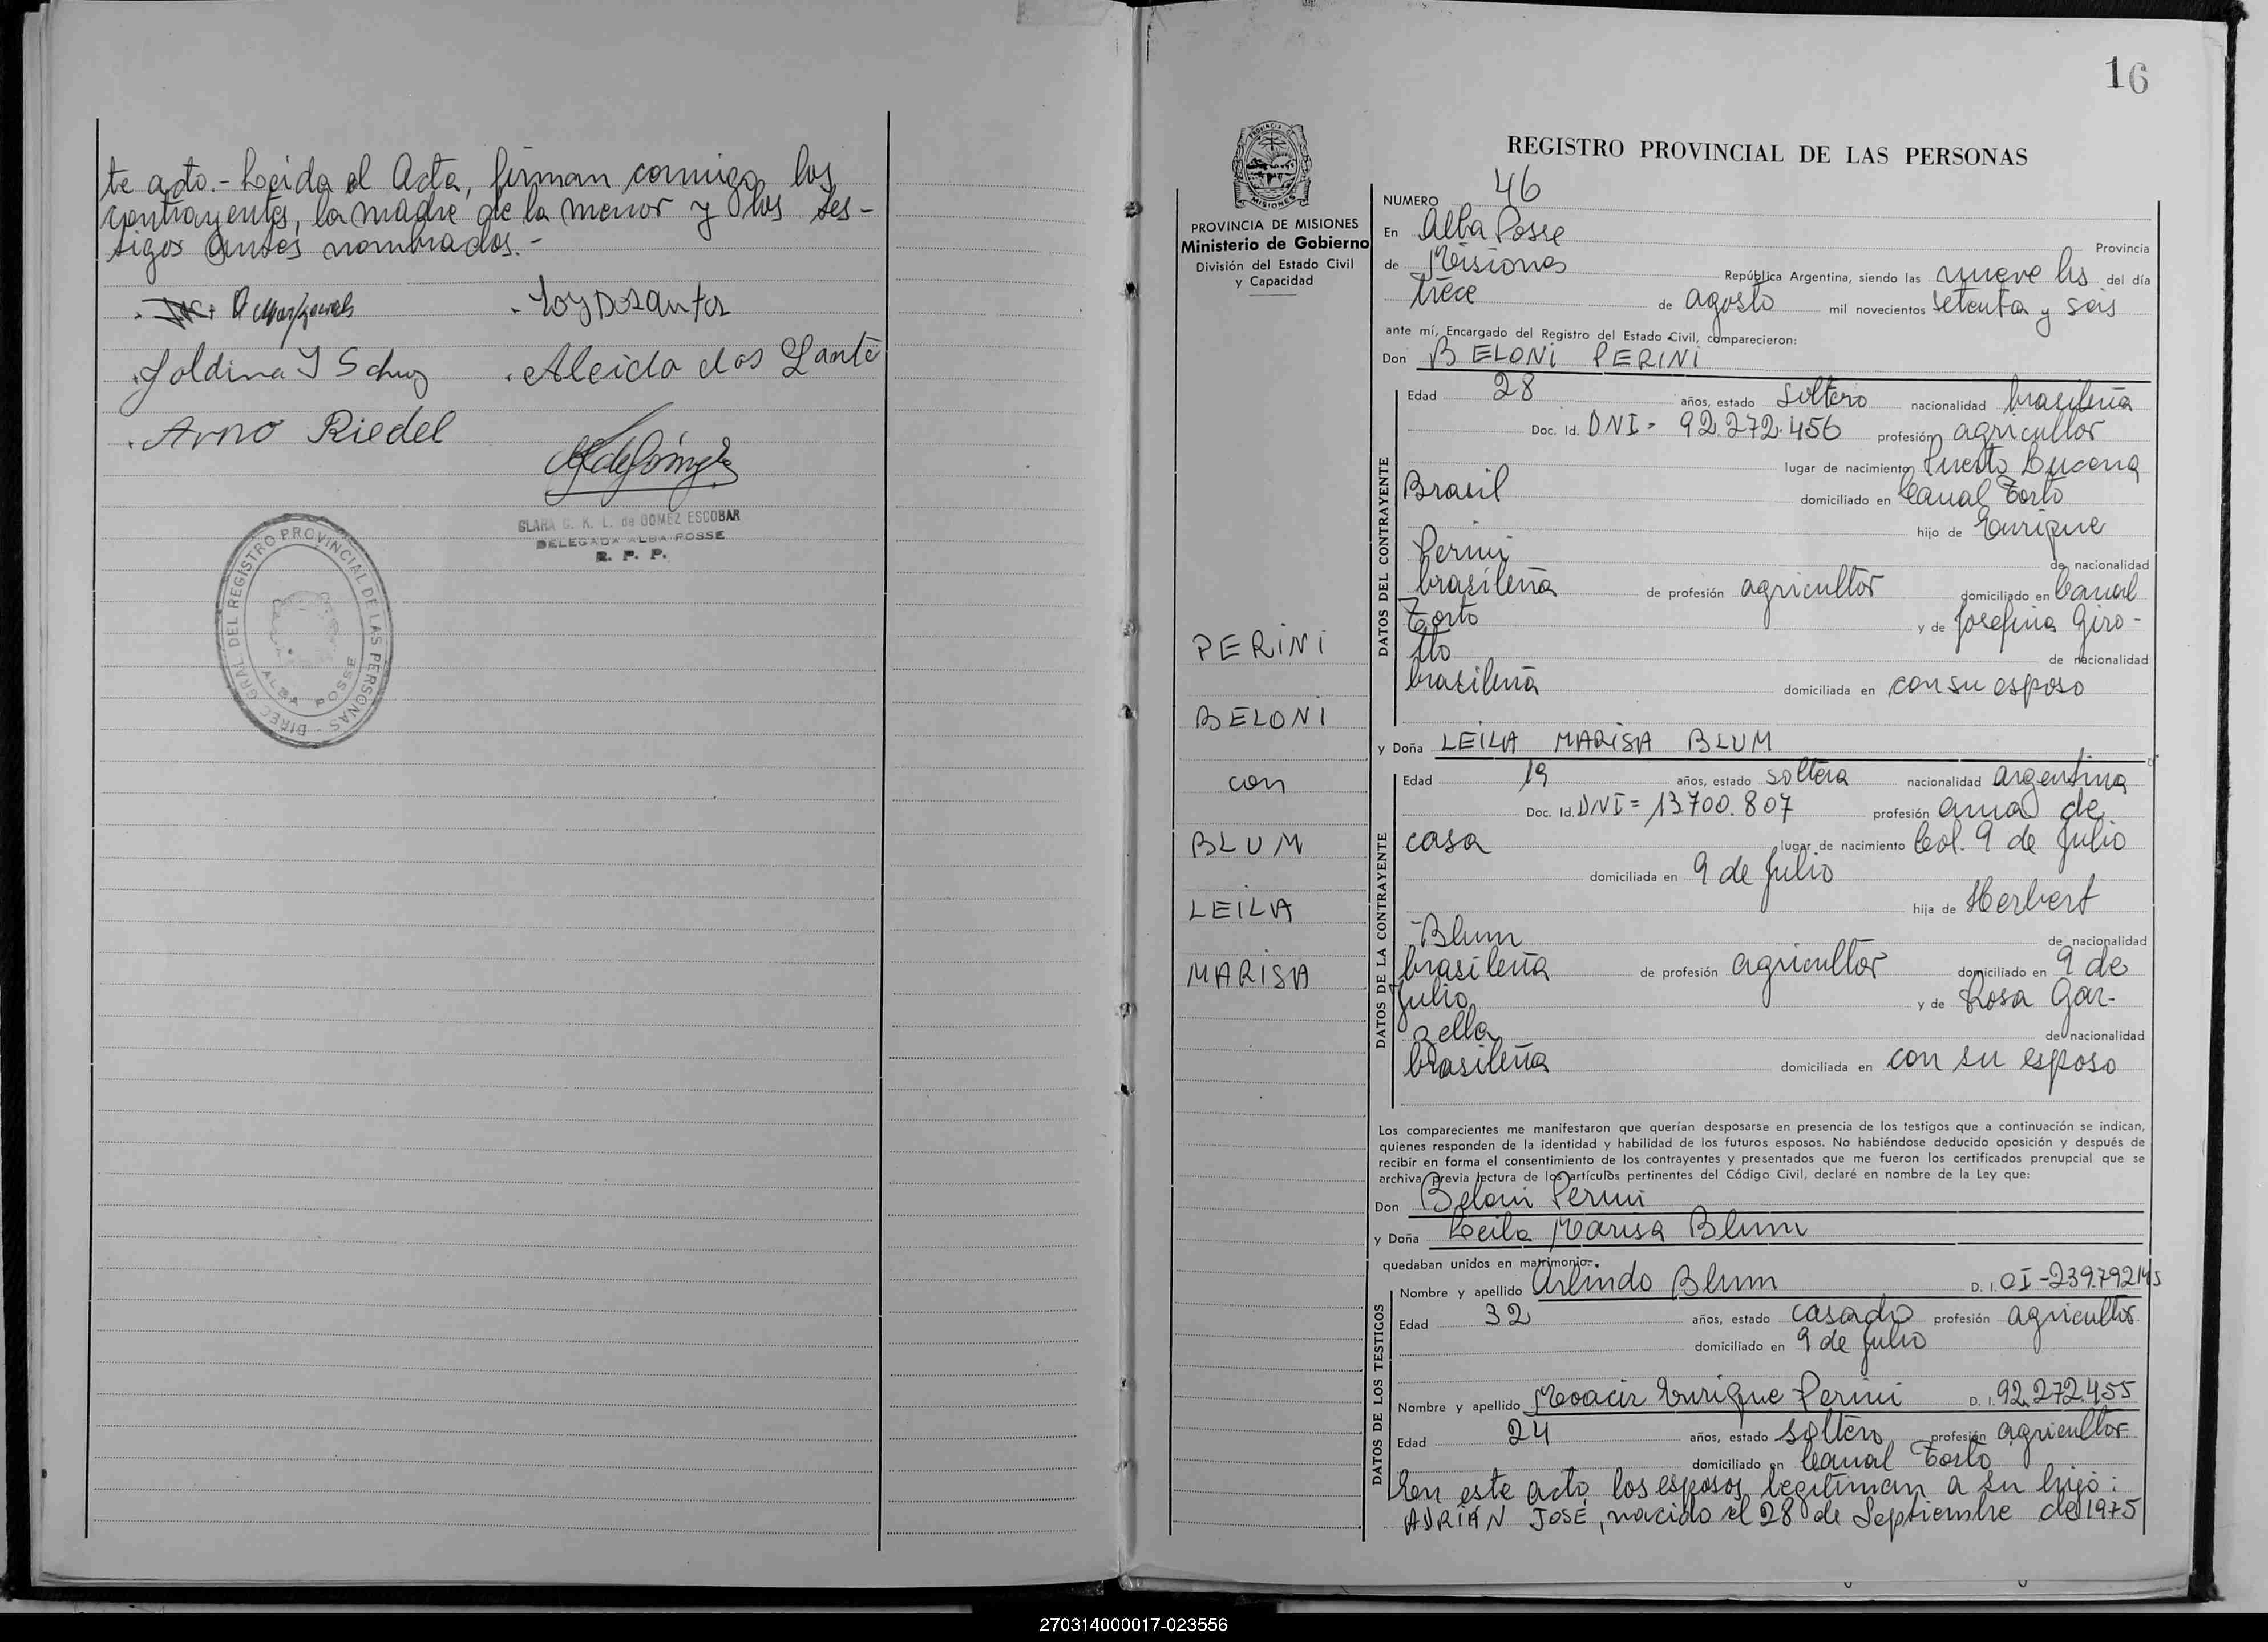 te acto.- Leida el Acta, firman conmigo los
contrayentes, la madre de la menor y los tes-
tigos antes nombrados.-
Loy Dosantos
Aleida dos Santo
Arno Riedel
CLARA C. K. L. de GOMEZ ESCOBAR
DELEGADA ALBA POSSE
R. P. P.
DIREC. GRAL. DEL REGISTRO PROVINCIAL DE LAS PERSONAS -
ALBA POSSE
16
REGISTRO PROVINCIAL DE LAS PERSONAS
PROVINCIA DE MISIONES
Ministerio de Gobierno
División del Estado Civil
y Capacidad
PERINI
BELONI
con
BLUM
LEILA
MARISA
NUMERO 46
En Alba Posse Provincia
de Misiones República Argentina, siendo las nueve hs del día
trece de agosto mil novecientos setenta y seis
ante mí, Encargado del Registro del Estado Civil, comparecieron:
Don BELONI PERINI
DATOS DEL CONTRAYENTE
Edad 28 años, estado soltero nacionalidad brasileña
Doc. Id. DNI= 92.272.456 profesión agricultor
lugar de nacimiento Puerto Lucena
Brasil domiciliado en Canal Torto
hijo de Enrique
Perini de nacionalidad
brasileña de profesión agricultor domiciliado en Canal
Torto y de Josefina Giro-
tto de nacionalidad
brasileña domiciliada en con su esposo
y Doña LEILA MARISA BLUM
DATOS DE LA CONTRAYENTE
Edad 19 años, estado soltera nacionalidad argentina
Doc. Id. DNI= 13.700.807 profesión ama de
casa lugar de nacimiento Col. 9 de Julio
domiciliada en 9 de Julio
hija de Herbert
Blum de nacionalidad
brasileña de profesión agricultor domiciliado en 9 de
Julio y de Rosa Gar-
zella de nacionalidad
brasileña domiciliada en con su esposo
Los comparecientes me manifestaron que querían desposarse en presencia de los testigos que a continuación se indican,
quienes responden de la identidad y habilidad de los futuros esposos. No habiéndose deducido oposición y después de
recibir en forma el consentimiento de los contrayentes y presentados que me fueron los certificados prenupcial que se
archiva, previa lectura de los artículos pertinentes del Código Civil, declaré en nombre de la Ley que:
Don Beloni Perini
y Doña Leila Marisa Blum
quedaban unidos en matrimonio.
DATOS DE LOS TESTIGOS
Nombre y apellido Arlindo Blum D. I. CI-239.792 Ms
Edad 32 años, estado casado profesión agricultor
domiciliado en 9 de Julio
Nombre y apellido Moacir Enrique Perini D. I. 92.272.455
Edad 24 años, estado soltero profesión agricultor
domiciliado en Canal Torto
En este acto los esposos legitiman a su hijo:
ADRIÁN JOSÉ, nacido el 28 de Septiembre de 1975
270314000017-023556